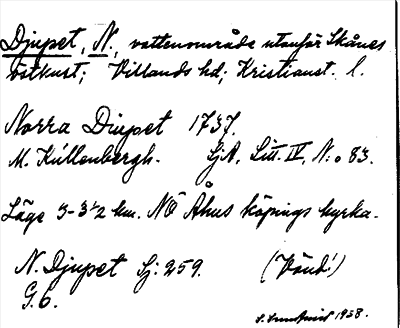 Djupet, N., vattenområde utanför Skånes
östkust; Villands hd; Kristianst. l.
Norra Diupet 1737.
M. Kiúllenbergh. GjA, Litt. IV, N:o 83.
Läge 3-3 1/2 km. NÖ Åhus köpings kyrka.
N. Djupet Sj: 259. (Vänd!)
G.b.
1938.